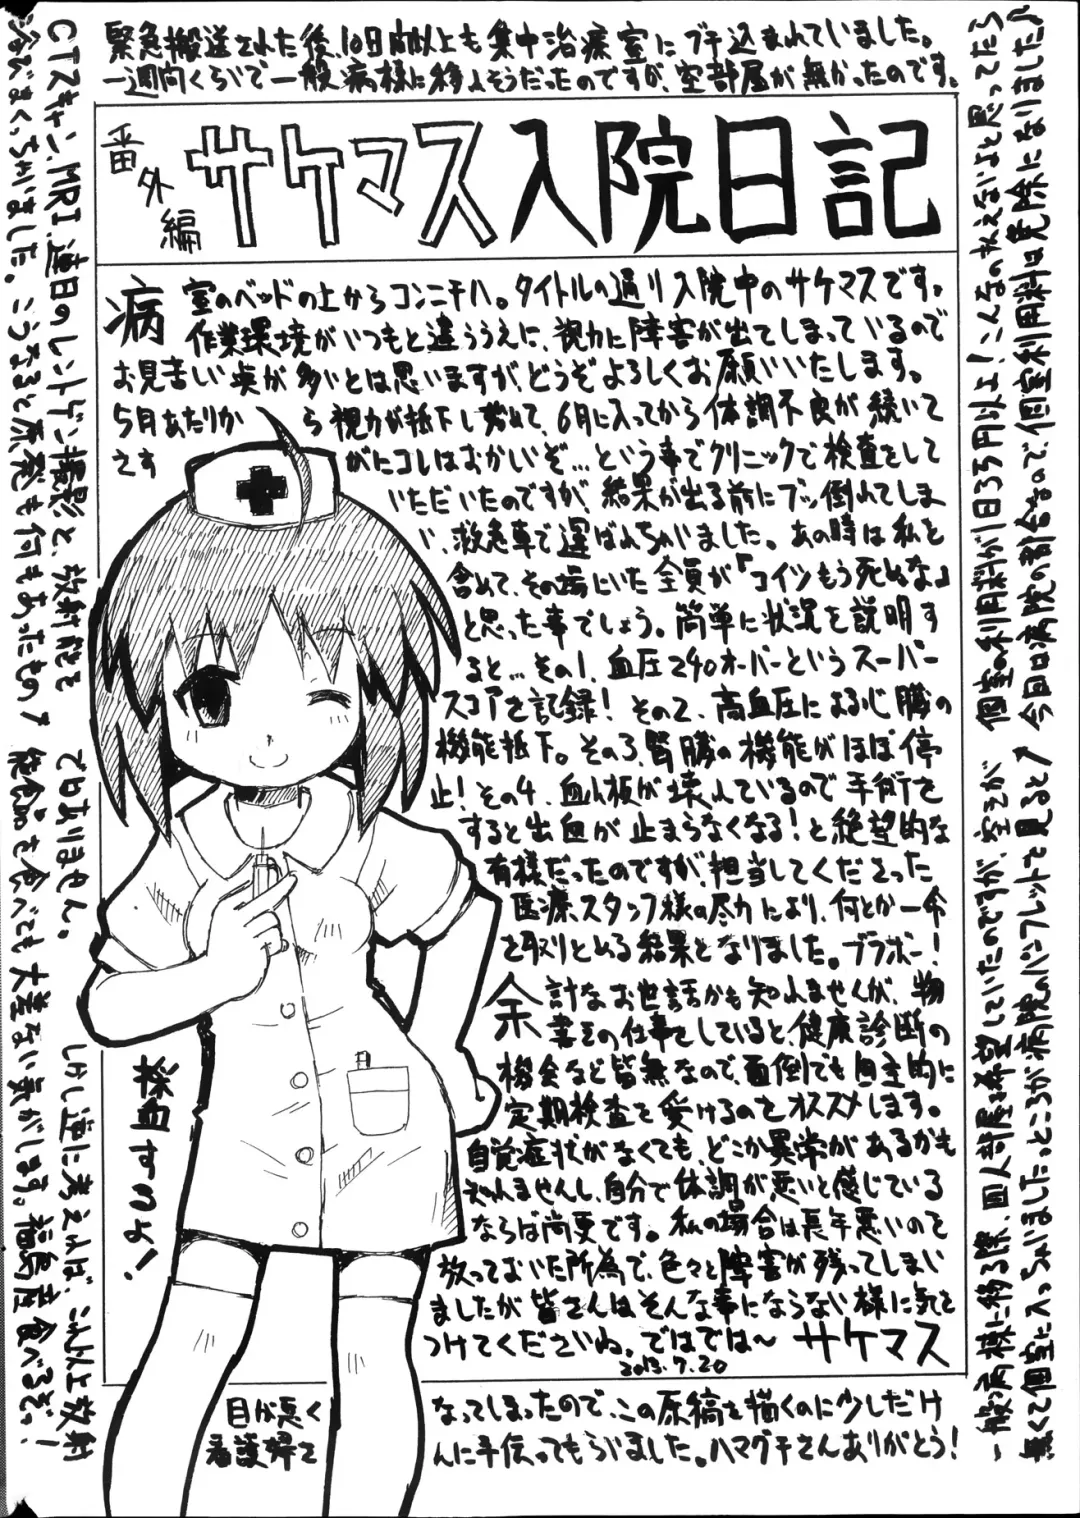 緊急搬送された後、10日間以上も集中治療室にブチ込まれていました。
一週間くらいで一般病棟に移れそうだったのですが、空部屋が無かったのです。
番外編
サケマス入院日記
病室のベッドの上からコンニチハ。タイトルの通り入院中のサケマスです。
作業環境がいつもと違ううえに、視力に障害が出てしまっているので
お見苦しい点が多いとは思いますがどうぞよろしくお願いいたします。
5月あたりから視力が低下し始めて、6月に入ってから体調不良が続いて
さすがにコレはおかしいぞ…という事でクリニックで検査をして
いただいたのですが、結果が出る前にブッ倒れてしま
い、救急車で運ばれちゃいました。あの時は私を
含めて、その場にいた全員が「コイツもう死ぬな」
と思った事でしょう。簡単に状況を説明す
ると…その1、血圧240オーバーというスーパー
スコアを記録！その2、高血圧による心臓の
機能低下。その3、腎臓の機能がほぼ停
止！その4、血小板が壊れているので手術を
すると出血が止まらなくなる！と絶望的な
有様だったのですが、担当してくださった
医療スタッフ様の尽力により、何とか一命
を取りとめる結果となりました。ブラボー！
余計なお世話かも知れませんが、物
書きの仕事をしていると、健康診断の
機会など皆無なので、面倒でも自主的に
定期検査を受けるのをオススメします。
自覚症状がなくても、どこか異常があるかも
知れませんし、自分で体調が悪いと感じている
ならば尚更です。私の場合は長年悪いのを
放っておいた所為で、色々と障害が残ってしまい
ましたが皆さんはそんな事にならない様に気を
つけてくださいね。ではでは〜 サケマス
2013.7.20
採血すっよ！
目が悪くなってしまったので、この原稿を描くのに少しだけ
看護婦さんに手伝ってもらいました。ハマグチさんありがとう！
一般病棟に移る際、四人部屋を希望していたのですが、空きが
無くて個室に入っちゃいました。ところが病院のパンフレットを見ると↗
個室の利用料が1日3万円以上！こんなの払えないよと思ってたら
今回は病院の都合なので、個室利用料は免除になりました♪
CTスキャン、MRI、連日のレントゲン撮影と、放射能を
浴びまくっちゃいました。こうなると原発も何もあったもの↗
ではありません。しかし逆に考えれば、これ以上放射
能食品を食べても大差ない気がします。福島産食べるぞ！